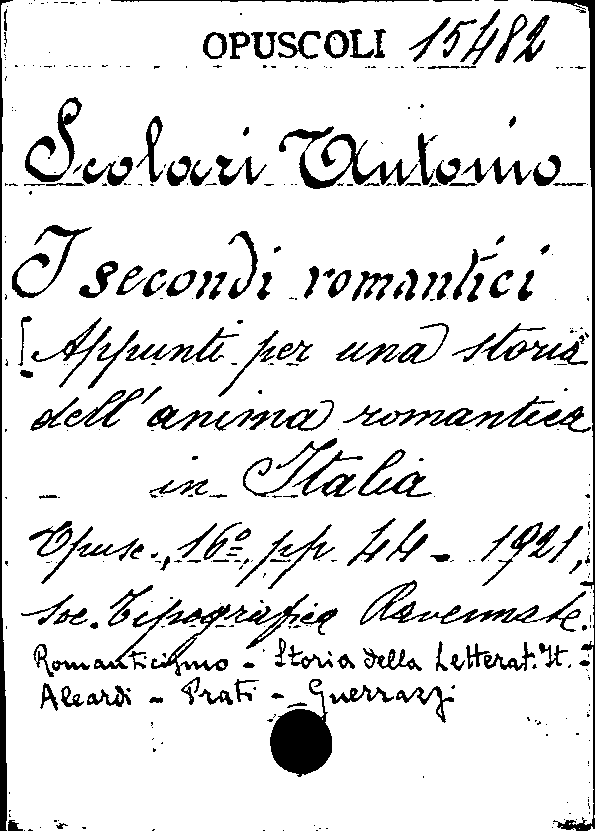 OPUSCOLI 15482
Scolari Antonio
I secondi romantici
[Appunti per una storia
dell'anima romantica
in Italia
Opusc., 16º, pp. 44 - 1921,
Soc. Tipografica Ravennate.
Romanticismo - Storia della Letterat. It. -
Aleardi - Prati - Guerrazzi